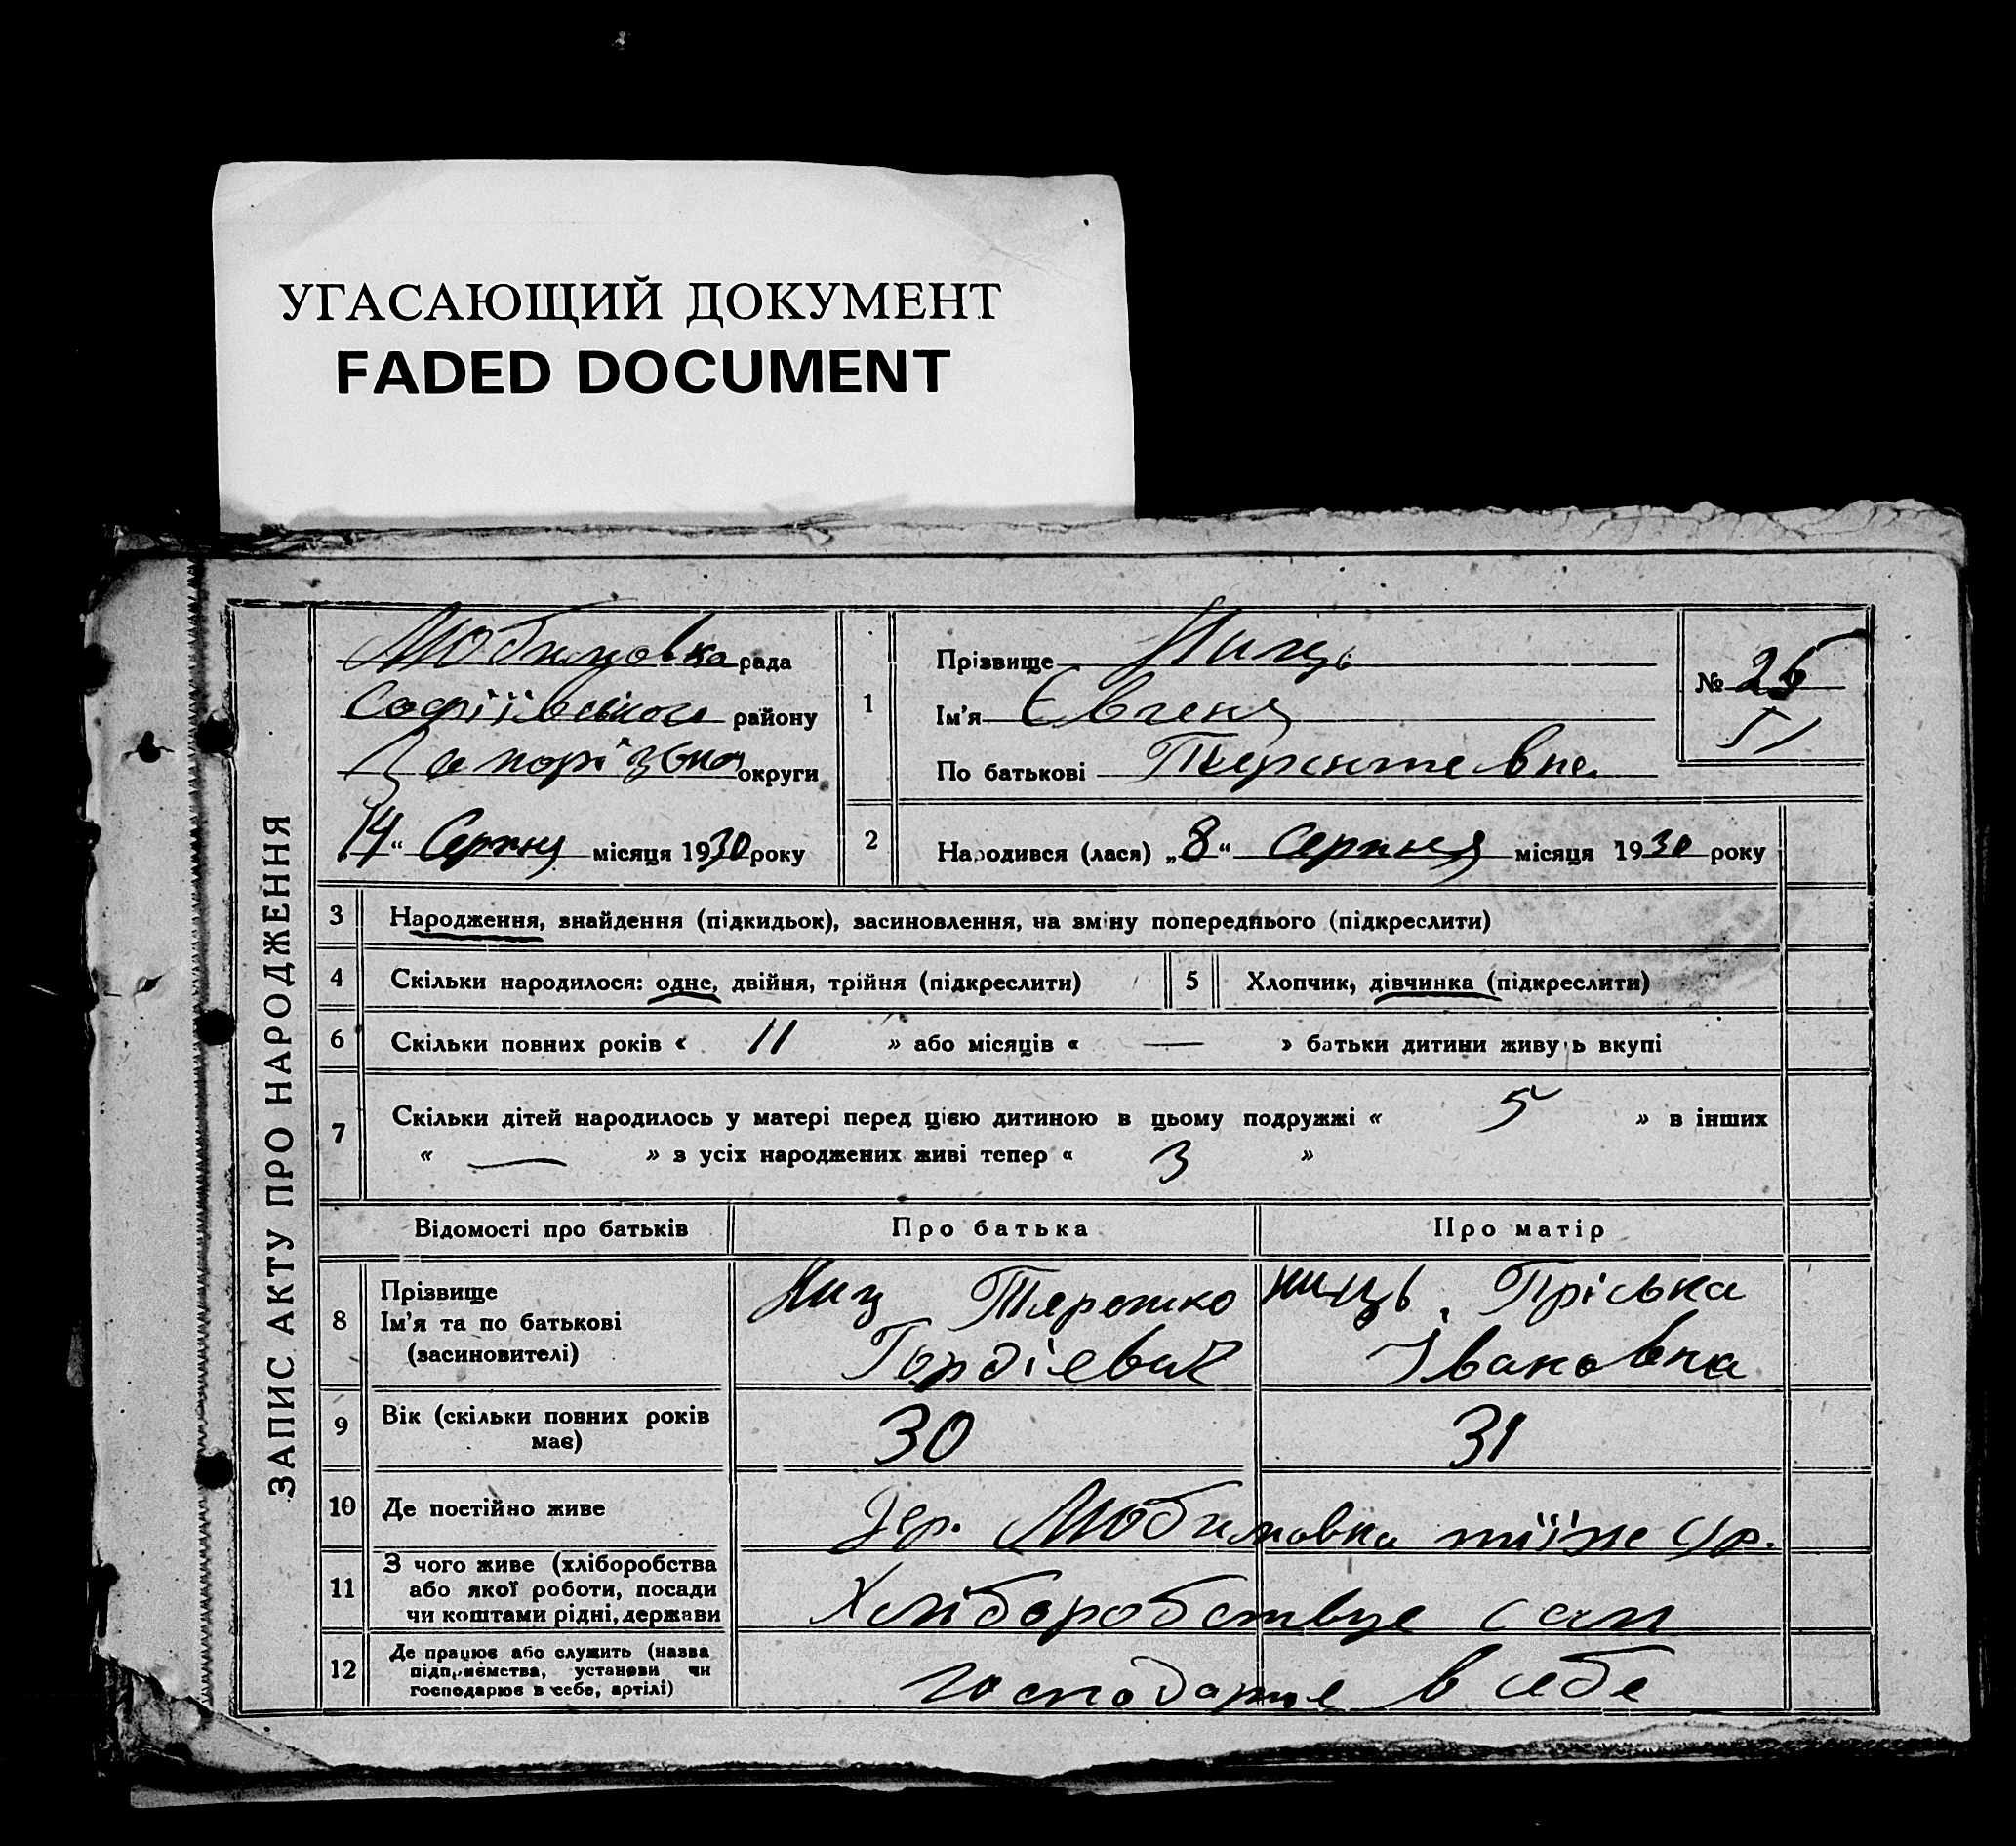 УГАСАЮЩИЙ ДОКУМЕНТ
FADED DOCUMENT
ЗАПИС АКТУ ПРО НАРОДЖЕННЯ
Любимовка рада
Софіївського району
Запорізької округи
14 “ Серпня місяця 1930 року
1
Прізвище Ниць
Ім'я Євгеня
По батькові Терентевна
№ 25
51
2
Народився (лася) „ 8 “ серпня місяця 1930 року
3 Народження, знайдення (підкидьок), засиновлення, на зміну попереднього (підкреслити)
4 Скільки народилося: одне, двійня, трійня (підкреслити) 5 Хлопчик, дівчинка (підкреслити)
6 Скільки повних років « 11 » або місяців « — » батьки дитини живуть вкупі
7 Скільки дітей народилось у матері перед цією дитиною в цьому подружжі « 5 » в інших
« — » з усіх народжених живі тепер « 3 »
Відомості про батьків Про батька Про матір
8 Прізвище
Ім'я та по батькові
(засиновителі)
Ниц Терешко
Гордієвич
Ниць Пріська
Івановна
9 Вік (скільки повних років
має)
30 31
10 Де постійно живе дер. Любимовка тіїж с/р.
11 З чого живе (хліборобства
або якої роботи, посади
чи коштами рідні, держави
Хліборобствує сам
12 Де працює або служить (назва
підприємства, установи чи
господарює в себе, артілі)
господарює в себе